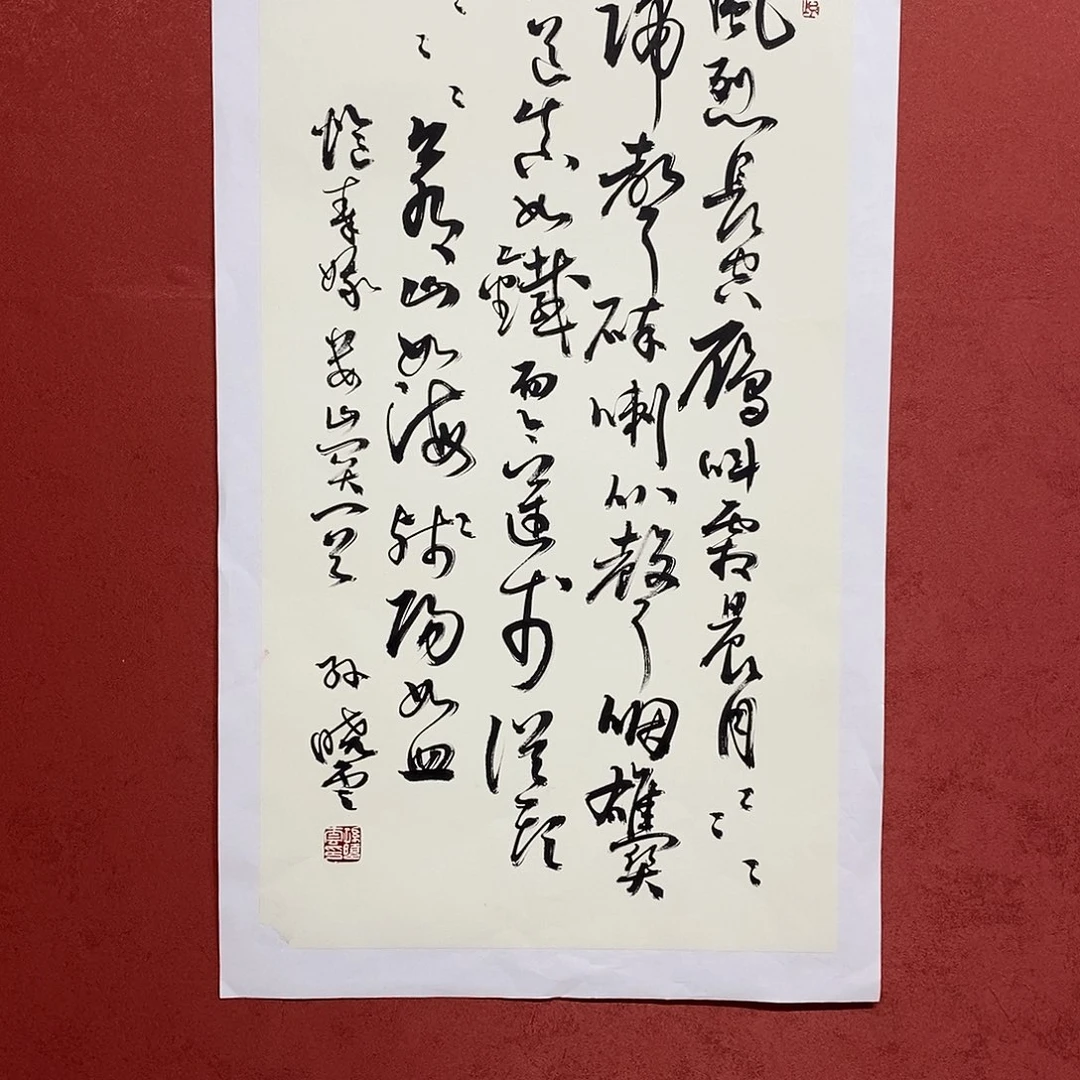 風烈長空鴈叫霜晨月〻〻〻
蹄聲碎喇叭聲咽雄關
道真如鐵而今邁步從頭
〻〻〻蒼山如海殘陽如血
憶秦娥 婁山關一首 孫曉雲